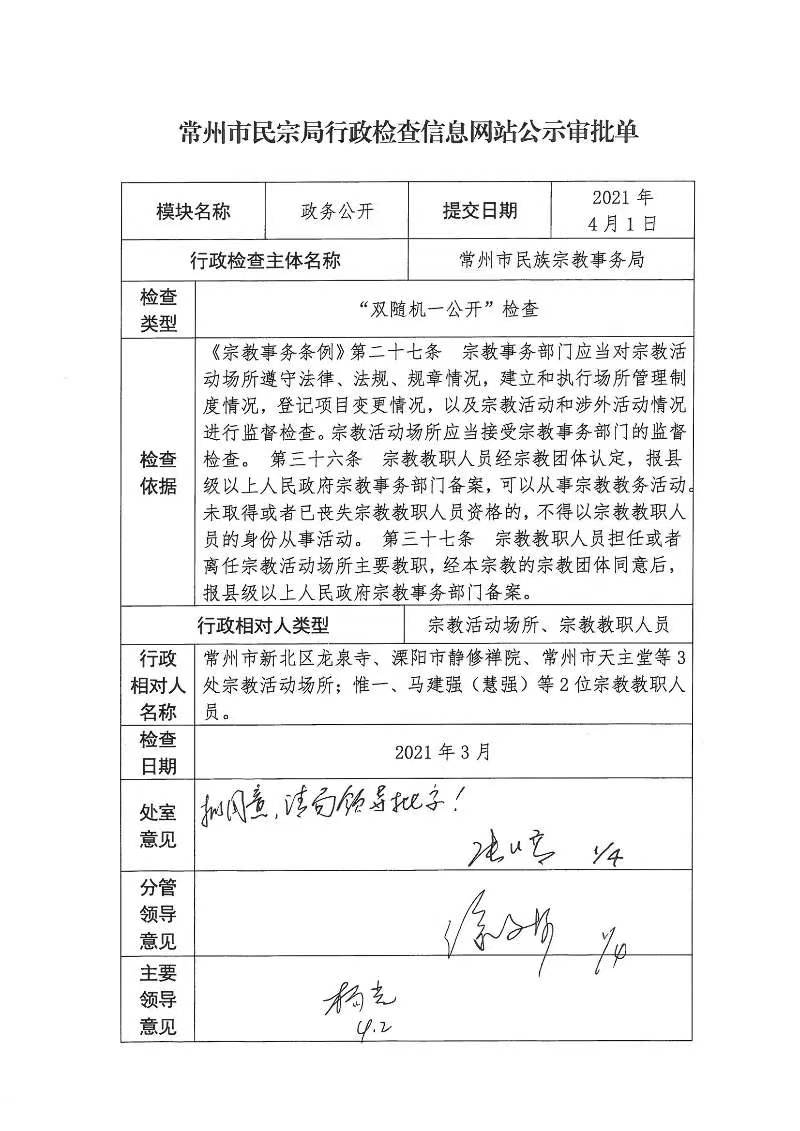 常州市民宗局行政检查信息网站公示审批单
模块名称 政务公开 提交日期 2021 年
4 月 1 日
行政检查主体名称 常州市民族宗教事务局
检查
类型
“双随机一公开”检查
检查
依据
《宗教事务条例》第二十七条 宗教事务部门应当对宗教活
动场所遵守法律、法规、规章情况，建立和执行场所管理制
度情况，登记项目变更情况，以及宗教活动和涉外活动情况
进行监督检查。宗教活动场所应当接受宗教事务部门的监督
检查。 第三十六条 宗教教职人员经宗教团体认定，报县
级以上人民政府宗教事务部门备案，可以从事宗教教务活动。
未取得或者已丧失宗教教职人员资格的，不得以宗教教职人
员的身份从事活动。 第三十七条 宗教教职人员担任或者
离任宗教活动场所主要教职，经本宗教的宗教团体同意后，
报县级以上人民政府宗教事务部门备案。
行政相对人类型 宗教活动场所、宗教教职人员
行政
相对人
名称
常州市新北区龙泉寺、溧阳市静修禅院、常州市天主堂等 3
处宗教活动场所；惟一、马建强（慧强）等 2 位宗教教职人
员。
检查
日期
2021 年 3 月
处室
意见
拟同意，请局领导批字！
1/4
分管
领导
意见
1/4
主要
领导
意见
杨光
4.2